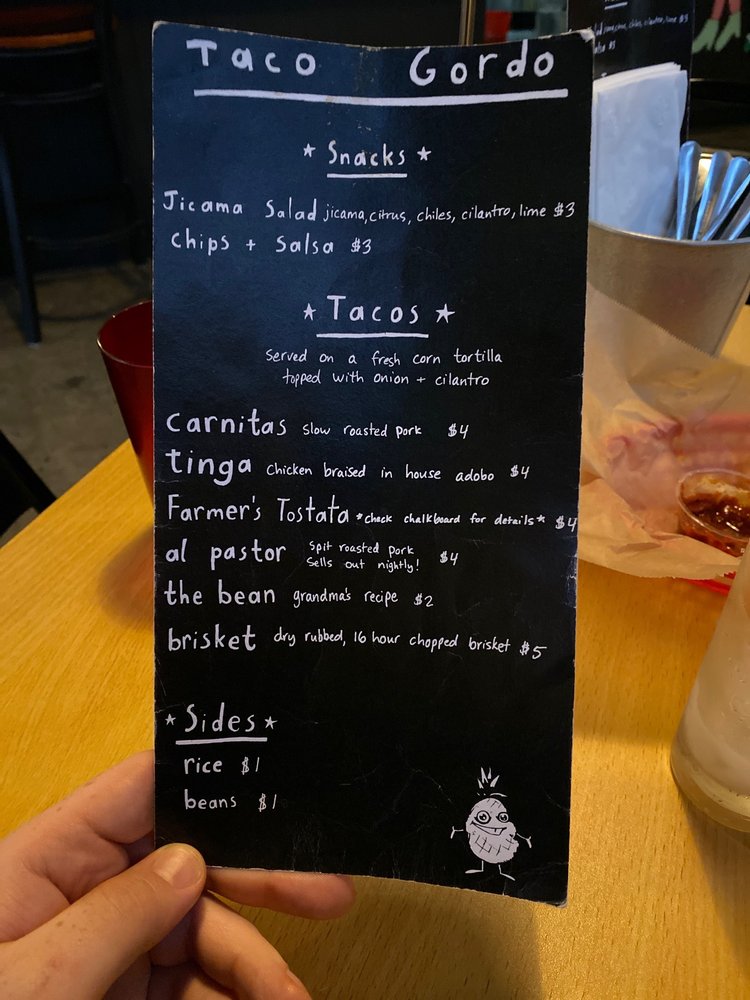 Taco Gordo
* Snacks *
Jicama Salad jicama, citrus, chiles, cilantro, lime $3
chips + salsa $3
* Tacos *
served on a fresh corn tortilla
topped with onion + cilantro
carnitas slow roasted pork $4
tinga chicken braised in house adobo $4
Farmer's Tostata *check chalkboard for details* $4
al pastor spit roasted pork
sells out nightly! $4
the bean grandma's recipe $2
brisket dry rubbed, 16 hour chopped brisket $5
* Sides *
rice $1
beans $1
cilantro, lime $3